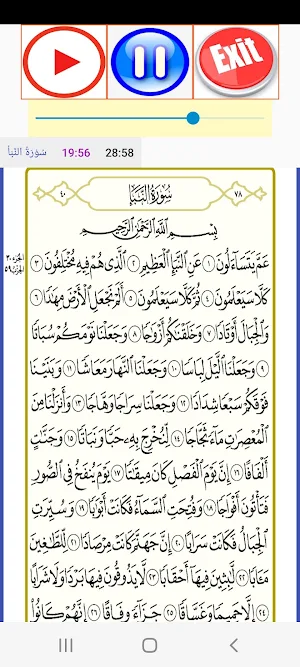 Exit
سُورَةُ النَّبَأ 19:56 28:58
٤٠ سُورَةُ النَّبَإِ ٧٨
بِسْمِ اللَّهِ الرَّحْمَٰنِ الرَّحِيمِ
الجزء ٣٠
الحزب ٥٩
عَمَّ يَتَسَاءَلُونَ ١ عَنِ النَّبَإِ الْعَظِيمِ ٢ الَّذِي هُمْ فِيهِ مُخْتَلِفُونَ ٣
كَلَّا سَيَعْلَمُونَ ٤ ثُمَّ كَلَّا سَيَعْلَمُونَ ٥ أَلَمْ نَجْعَلِ الْأَرْضَ مِهَادًا ٦
وَالْجِبَالَ أَوْتَادًا ٧ وَخَلَقْنَاكُمْ أَزْوَاجًا ٨ وَجَعَلْنَا نَوْمَكُمْ سُبَاتًا
٩ وَجَعَلْنَا اللَّيْلَ لِبَاسًا ١٠ وَجَعَلْنَا النَّهَارَ مَعَاشًا ١١ وَبَنَيْنَا
فَوْقَكُمْ سَبْعًا شِدَادًا ١٢ وَجَعَلْنَا سِرَاجًا وَهَّاجًا ١٣ وَأَنزَلْنَا مِنَ
الْمُعْصِرَاتِ مَاءً ثَجَّاجًا ١٤ لِّنُخْرِجَ بِهِ حَبًّا وَنَبَاتًا ١٥ وَجَنَّاتٍ
أَلْفَافًا ١٦ إِنَّ يَوْمَ الْفَصْلِ كَانَ مِيقَاتًا ١٧ يَوْمَ يُنفَخُ فِي الصُّورِ
فَتَأْتُونَ أَفْوَاجًا ١٨ وَفُتِحَتِ السَّمَاءُ فَكَانَتْ أَبْوَابًا ١٩ وَسُيِّرَتِ
الْجِبَالُ فَكَانَتْ سَرَابًا ٢٠ إِنَّ جَهَنَّمَ كَانَتْ مِرْصَادًا ٢١ لِّلطَّاغِينَ
مَآبًا ٢٢ لَّابِثِينَ فِيهَا أَحْقَابًا ٢٣ لَّا يَذُوقُونَ فِيهَا بَرْدًا وَلَا شَرَابًا
٢٤ إِلَّا حَمِيمًا وَغَسَّاقًا ٢٥ جَزَاءً وِفَاقًا ٢٦ إِنَّهُمْ كَانُوا